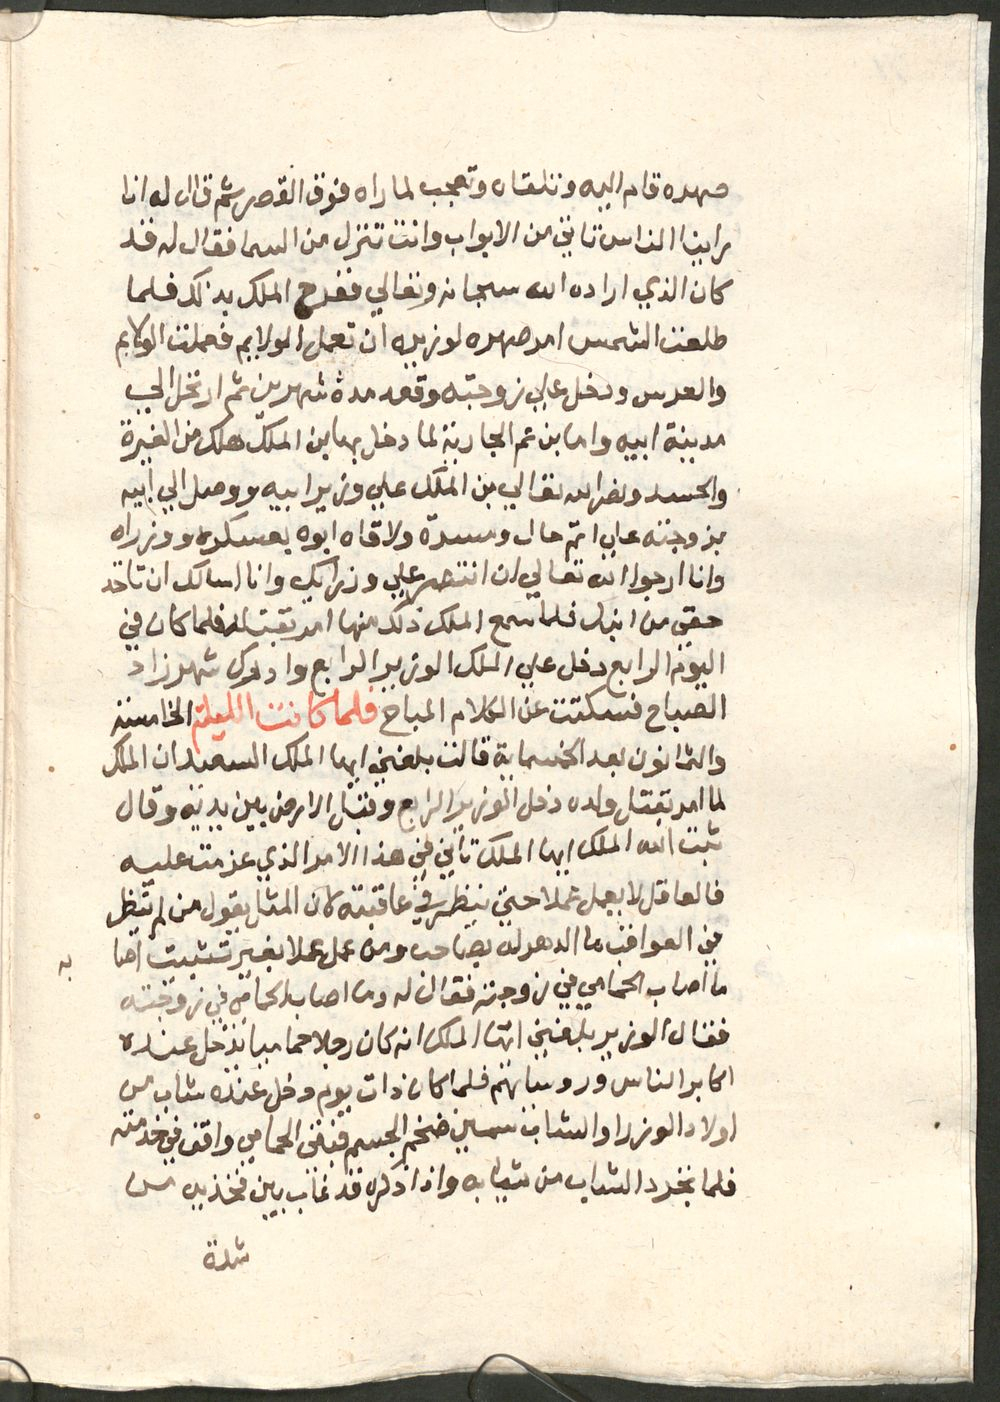 صهره قام اليه وتلقاه وتعجب لما راه فوق القصر ثم قال له انا
راينا الناس تاتي من الابواب وانت تنزل من السما فقال له قد
كان الذي اراده الله سبحانه وتعالي ففرح الملك بذلك فلما
طلعت الشمس امر صهره لوزيره ان تعمل الولايم فعملت الولايم
والعرس ودخل علي زوجته وقعد مدة شهرين ثم ارتحل الي
مدينة ابيه واما بن عم الجارية لما دخل بها بن الملك هلك من الغيرة
والحسد ونصر الله تعالي بن الملك علي وزير ابيه ووصل الي ابيه
بزوجته علي اتم حال ومسرة ولاقاه ابوه بعسكره ووزراه
وانا ارجوا الله تعالي ان انتصر علي وزرايك وانا اسالك ان تاخد
حقي من ابنك فلما سمع الملك ذلك منها امر بقتله فلما كان في
اليوم الرابع دخل علي الملك الوزير الرابع وادرك شهرزاد
الصباح فسكتت عن الكلام المباح فلما كانت الليلة الخامسة
والثمانون بعد الخمسماية قالت بلغني ايها الملك السعيد ان الملك
لما امر بقتل ولده دخل الوزير الرابع وقبل الارض بين يديه وقال
ثبت الله الملك ايها الملك تاني في هذا الامر الذي عزمت عليه
فالعاقل لا يعمل عملا حتي ينظر في عاقبته لان المثل يقول من لم ينظر
في العواقب ما الدهر له بصاحب ومن عمل عملا بغير تثبيت اصا
به
ما اصاب الحمامي في زوجته فقال له وما اصاب الحمامي في زوجته
فقال الوزير بلغني ايها الملك انه كان رجلا حماميا تدخل عنده
اكابر الناس وروساهم فلما كان ذات يوم دخل عنده شاب من
اولاد الوزرا والشاب سمين ضخم الجسم فبقي الحمامي واقف في خدمته
فلما تجرد الشاب من ثيابه واذا ذكره قد غاب بين فخذيه من
شدة